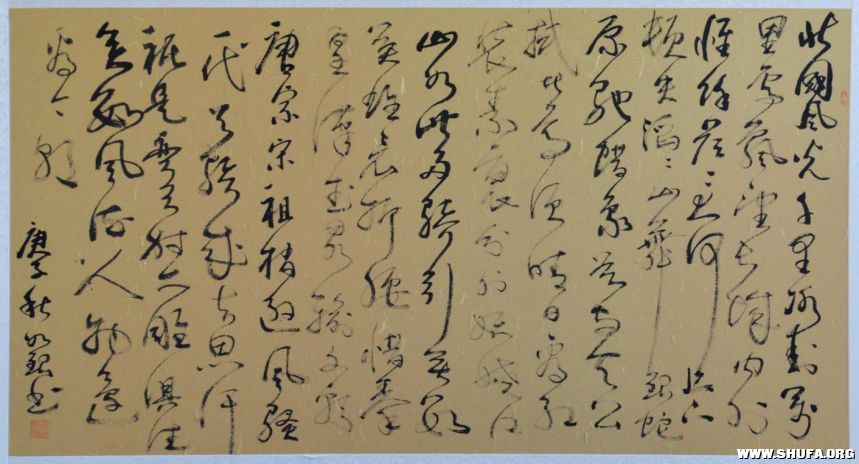 北國風光千里冰封萬
里雪飄望長城內外
惟餘莽莽大河上下
頓失滔滔山舞銀蛇
原馳蠟象欲與天公
試比高須晴日看紅
裝素裹分外妖嬈江
山如此多嬌引無數
英雄競折腰惜秦
皇漢武略輸文采
唐宗宋祖稍遜風騷
一代天驕成吉思汗
祇是彎弓射大雕俱往
矣數風流人物還
看今朝
庚子秋書
WWW.SHUFA.ORG